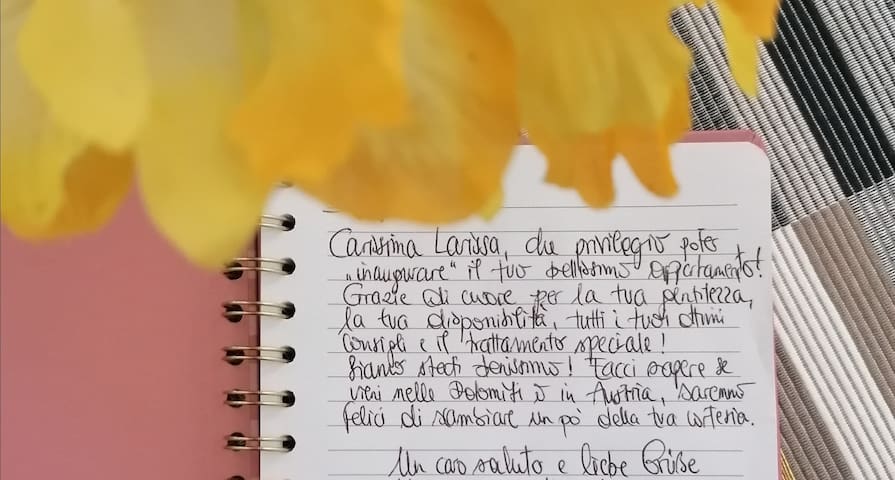 Carissima Larissa, che privilegio poter
„inaugurare" il tuo bellissimo appartamento!
Grazie di cuore per la tua gentilezza,
la tua disponibilità, tutti i tuoi ottimi
consigli e il trattamento speciale!
Siamo stati benissimo! Facci sapere se
vieni nelle Dolomiti o in Austria, saremmo
felici di scambiare un pò della tua cortesia.
Un caro saluto e liebe Grüße